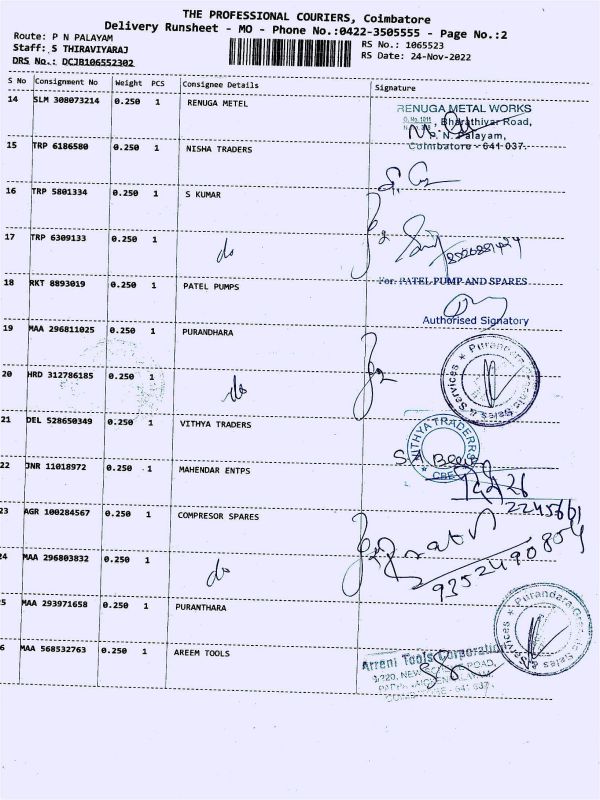 THE PROFESSIONAL COURIERS, Coimbatore
Delivery Runsheet - MO - Phone No.:0422-3505555 - Page No.:2
Route: P N PALAYAM
RS No.: 1065523
Staff: S THIRAVIYARAJ
RS Date: 24-Nov-2022
DRS No.: DCJB106552302
S No Consignment No Weight PCS Consignee Details Signature
14 SLM 308073214 0.250 1 RENUGA METEL
RENUGA METAL WORKS
Bharathiyar Road,
P. N. Palayam,
Coimbatore - 641 037.
15 TRP 6186580 0.250 1 NISHA TRADERS
16 TRP 5801334 0.250 1 S KUMAR
17 TRP 6309133 0.250 1 do
18 RKT 8893019 0.250 1 PATEL PUMPS
For. PATEL PUMP AND SPARES
Authorised Signatory
19 MAA 296811025 0.250 1 PURANDHARA
Purandara
Sales & Services
20 HRD 312786185 0.250 1 do
21 DEL 528650349 0.250 1 VITHYA TRADERS
VITHYA TRADERRS
CBE
22 JNR 11018972 0.250 1 MAHENDAR ENTPS
2245661
23 AGR 100284567 0.250 1 COMPRESOR SPARES
9352490804
24 MAA 296803832 0.250 1 do
5 MAA 293971658 0.250 1 PURANTHARA
Purandara
Sales & Services
6 MAA 568532763 0.250 1 AREEM TOOLS
Arreni Tools Corporation
ROAD,
COIMBATORE - 641 037.